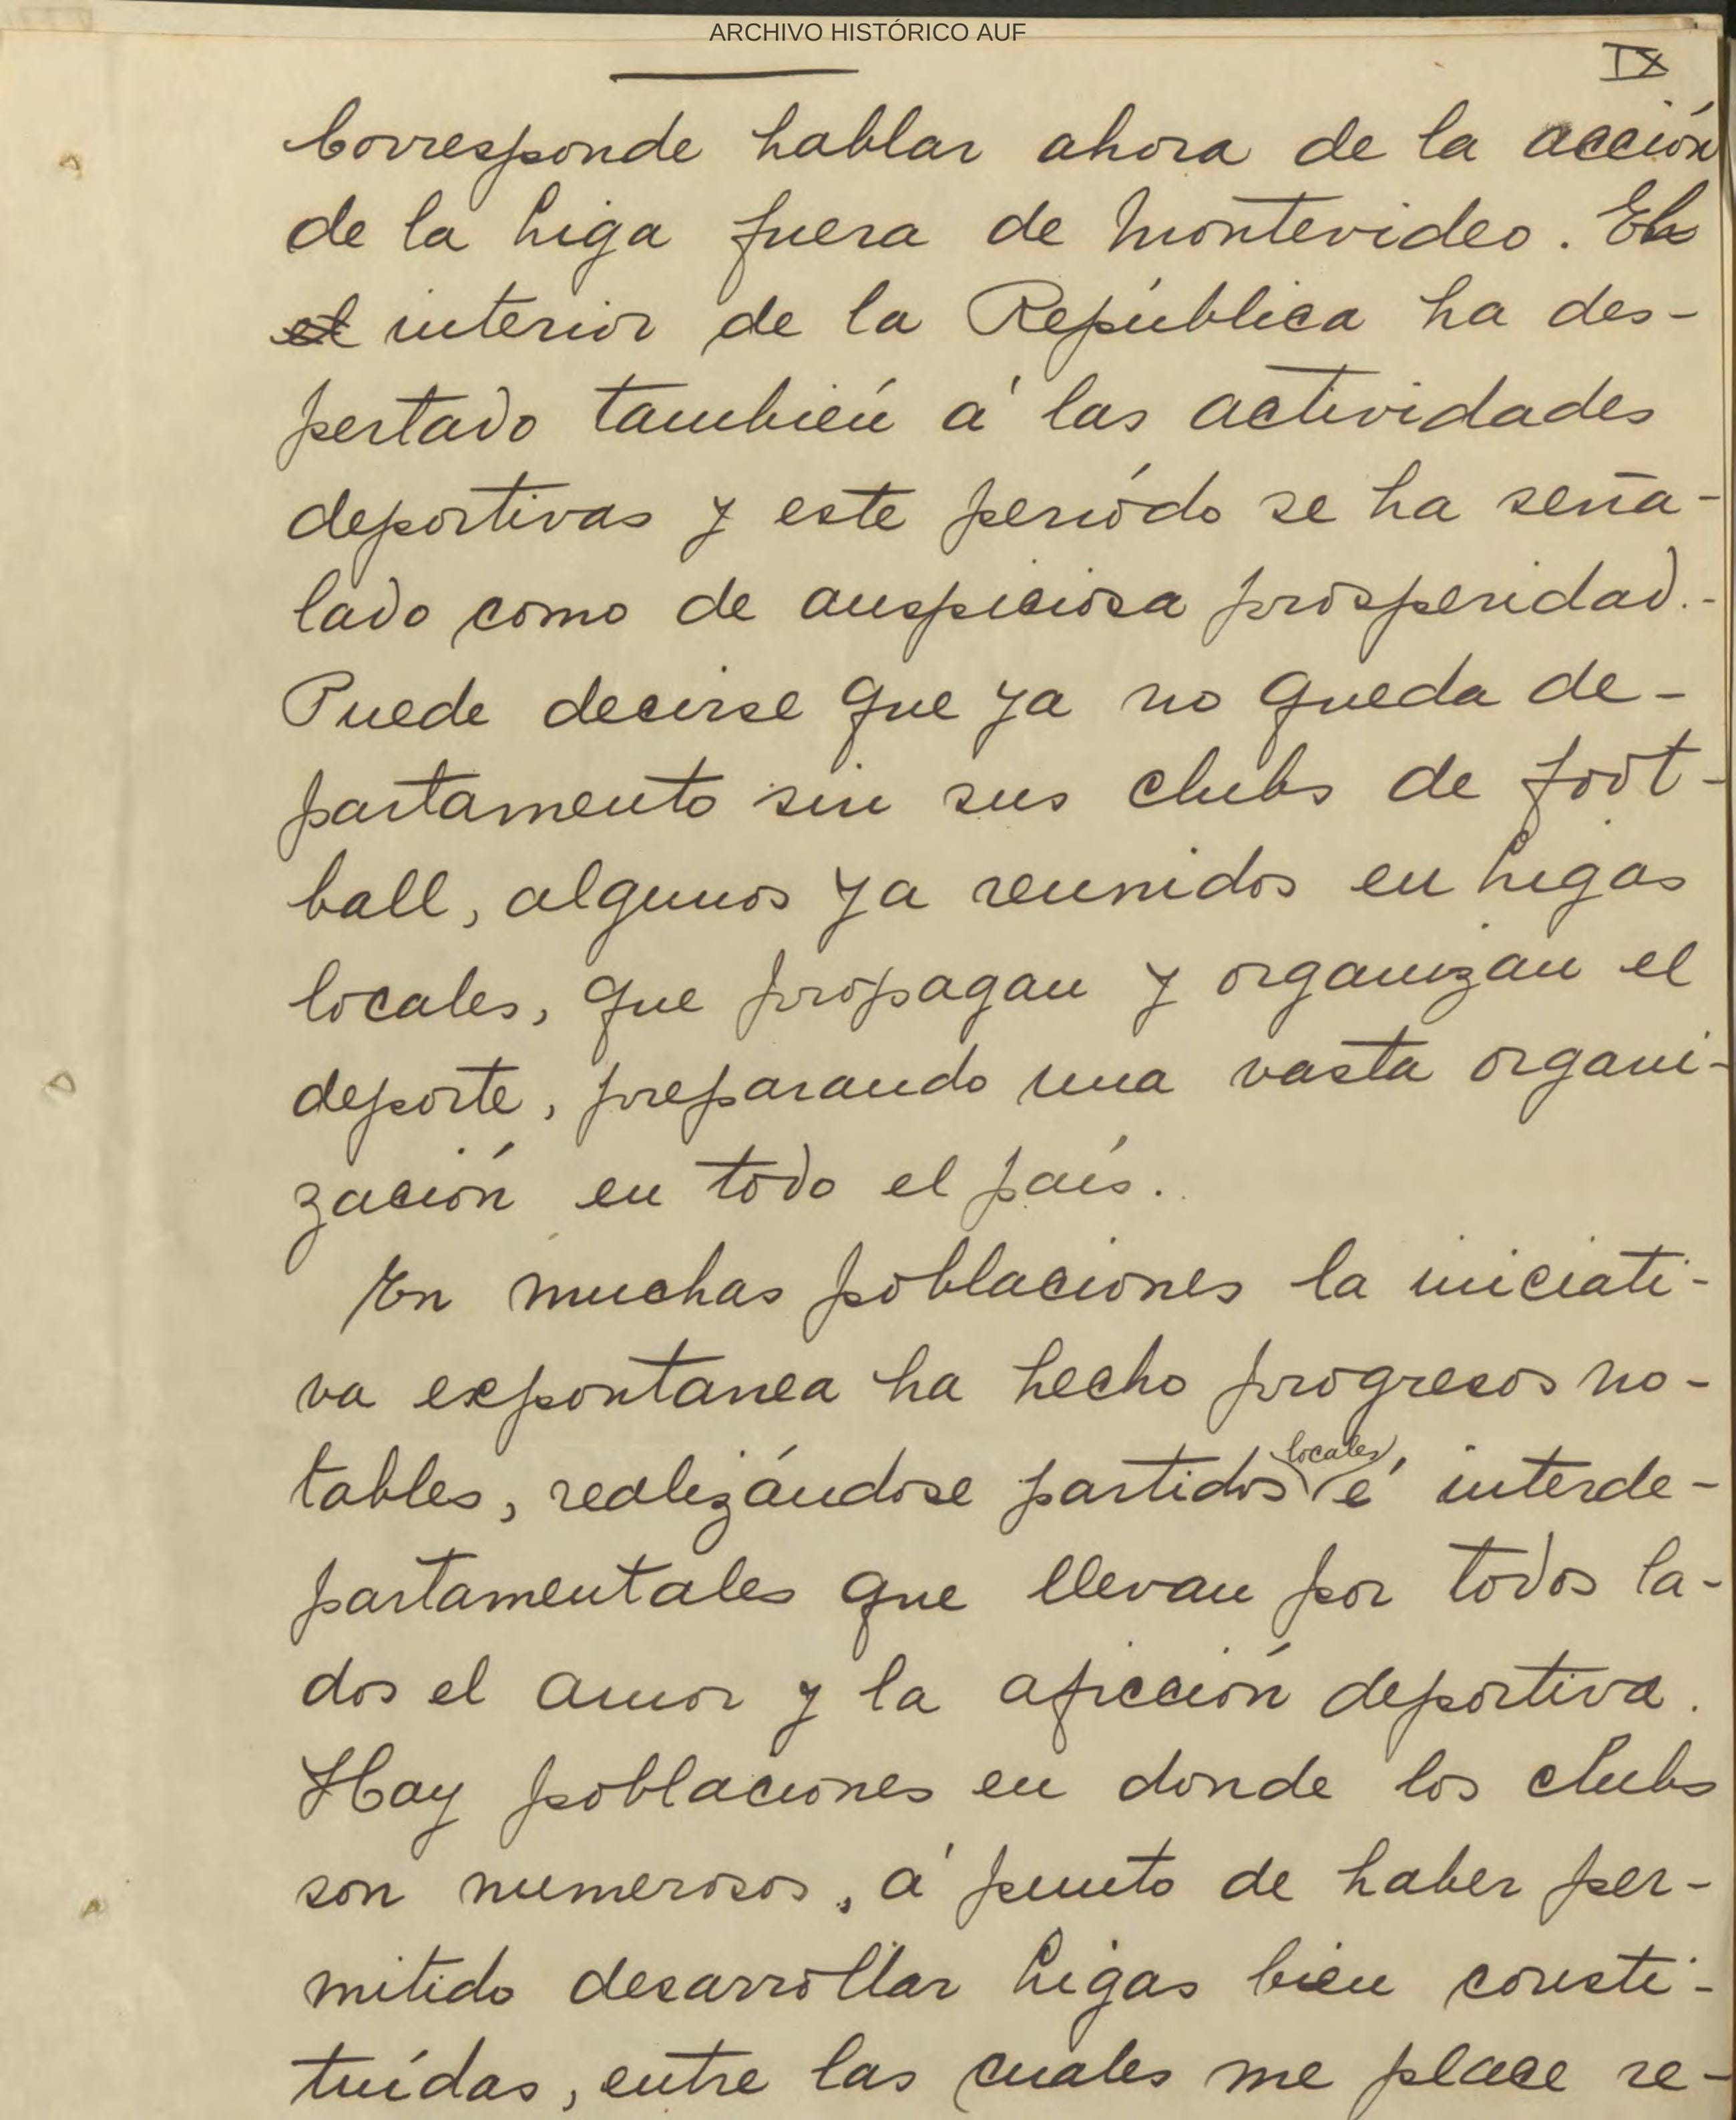 ARCHIVO HISTÓRICO AUF
IX
Corresponde hablar ahora de la acción
de la Liga fuera de Montevideo. El
el interior de la República ha des-
pertado también á las actividades
deportivas y este periódo se ha seña-
lado como de auspiciosa prosperidad.-
Puede decirse que ya no queda de-
partamento sin sus clubs de foot-
ball, algunos ya reunidos en Ligas
locales, que propagan y organizan el
deporte, preparando una vasta organi-
zación en todo el país.
En muchas poblaciones la iniciati-
va expontanea ha hecho progresos no-
tables, realizándose partidos locales, é interde-
partamentales que llevan por todos la-
dos el amor y la aficción deportiva.
Hay poblaciones en donde los clubs
son numerosos, á punto de haber per-
mitido desarrollar Ligas bien consti-
tuídas, entre las cuales me place re-